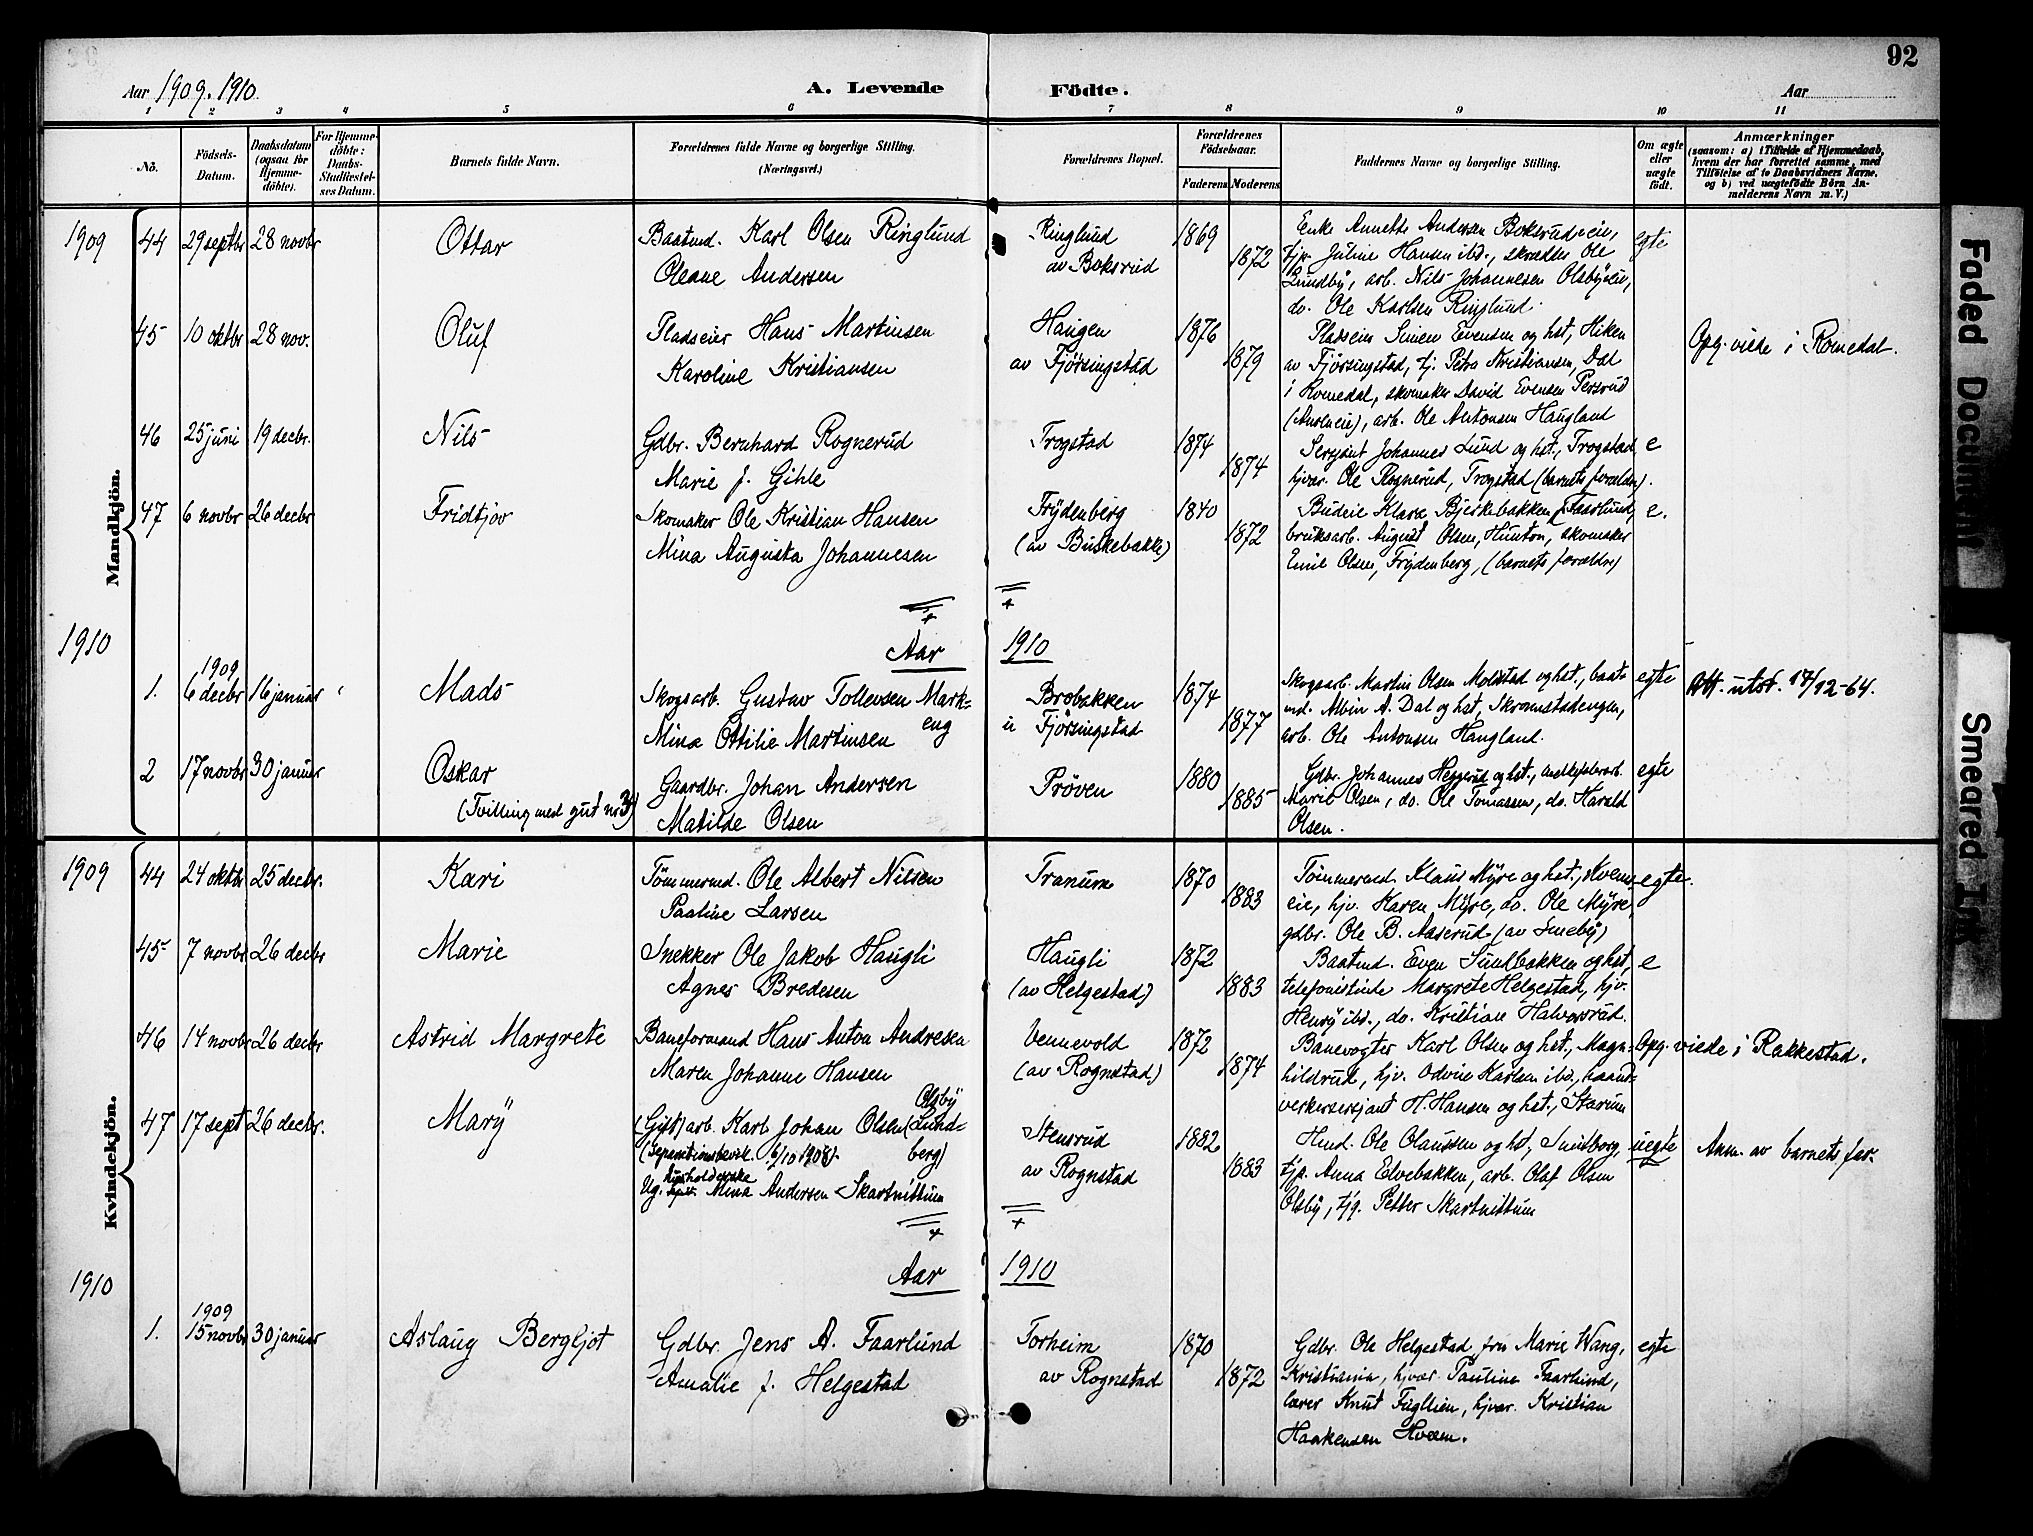 92
Aar 1909. 1910.
A. Levende Födte.
Aar
1 2 3 4 5 6 7 8 9 10 11
No.
Födsels-Datum.
Daabsdatum (ogsaa for Hjemmedöbte).
For Hjemmedöbte: Daabs-Stadfæstelses Datum.
Barnets fulde Navn.
Forældrenes fulde Navne og borgerlige Stilling.
(Næringsvei.)
Forældrenes Bopæl.
Forældrenes Födselsaar.
Faderens Moderens
Faddernes Navne og borgerlige Stilling.
Om ægte eller uægte födt.
Anmærkninger
(saasom: a) i Tilfælde af Hjemmedaab,
hvem der har forrettet samme, med
Tilföielse af to Daabsvidners Navne,
og b) ved uægtefödte Börn An-
melderens Navn m. V.)
Mandkjön.
1909 44 29 septbr 28 novbr Ottar
Baatmd. Karl Olsen Ringlund
Oleane Andersen
Ringlund
av Boksrud
1869 1872
Enke Annette Andersen Boksrudeie,
tjp. Juline Hansen ibd., skrædder Ole
Lundby, arb. Nils Johannesen Olsbyeie,
do. Ole Karlsen Ringlund.
egte
45 10 oktbr 28 nov. Oluf
Pladseier Hans Martinsen
Karoline Kristiansen
Haugen
av Fjørsingstad
1876 1879
Pladseier Simen Evensen og hst, Hiken
av Fjørsingstad, tj. Petra Kristiansen, Dal
i Romedal, skomaker David Evensen Persrud
arb. Ole Antonsen Haugland
Opg. viede i Romedal.
46 25 juni 19 decbr. Nils
Gdbr. Bernhard Rognerud
Marie f. Gihle
Trogstad
1874 1874
Sersjant Johannes Lund og hst., Trogstad,
hjvær. Ole Rognerud, Trogstad (barnets forældre).
e
47 6 novbr 26 decbr Fridtjov
Skomaker Ole Kristian Hansen
Mina Augusta Johannesen
Frydenberg
(av Biskebakke)
1840 1872
Budeie Klara Bjerkebakken, Faarlund,
bruksarb. August Olsen, Hunton, skomaker
Emil Olsen, Frydenberg, (barnets forældre)
e.
Aar 1910
1910
1. 1909 6 decbr 16 januar Mads
Skogsarb. Gustav Tollevsen Mark-
eng
Mina Ottilie Martinsen
Brobakken
u Fjørsingstad
1874 1877
Skogsarb. Martin Olsen Molstad og hst., baat-
md. Albin A. Dal og hst, Skramstadengen,
arb. Ole Antonsen Haugland.
egte
Att. utst. 17/12-64.
2 17 novbr 30 januar Oskar
(Tvilling med gut nr 3)
Gaardbr. Johan Andersen
Matilde Olsen
Prøven
1880 1885
Gdbr. Johannes Heggerud og hst.,
Marie Olsen, do. Ole Tomassen, do. Harald
Olsen.
egte
Kvindekjön.
1909 44 24 oktbr 25 decbr. Kari
Tømmermd. Ole Albert Nilsen
Pauline Larsen
Tranum
1870 1883
Tømmermd Klaus Myre og hst., Kvem-
eie, hjv. Karen Myre, do. Ole Myre,
gdbr. Ole B. Aaserud (av Smeby)
egte.
45 7 novbr 26 decbr Marie
Snekker Ole Jakob Haugli
Agnes Bredesen
Haugli
(av Helgestad)
1872 1883
Baatmd. Even Sundbakken og hst,
telefonistinde Margrete Helgestad, hjv.
Henry ibd., do. Kristian Halvorsrud.
e
46 14 novbr 26 decbr Astrid Margrete
Baneformand Hans Anton Andresen
Maren Johanne Hansen
Vennevold
(av Rognstad)
1872 1874
Banevogter Karl Olsen og hst., Magn-
hildrud, hjv. Odvin Karlsen ibd., haand-
verkersersjant H. Hansen og hst., Starum
Opg. viede i Rakkestad.
47 17 sept 26 decbr. Mary
Olsby
(Gift) arb. Karl Johan Olsen (Lund-
berg)
(Separationsbevil. 6/10 1908).
husholderske
Ug. Mina Andersen Skartnittum
Stensrud
av Rognstad
1882 1883
Hmd. Ole Olaussen og hst., Smidborg,
tjp. Anna Elvebakken, arb. Olaf Olsen
Olsby, tjg. Petter Skartnittum
uegte
Anm. av barnets far.
Aar 1910
1910
1. 1909 15 novbr 30 januar Aslaug Bergljot
Gdbr. Jens A. Faarlund
Amalie f. Helgestad
Torheim
av Rognstad
1870 1872
Gdbr. Ole Helgestad, fru Marie Wang,
Kristiania, hjvær. Pauline Faarlund,
lærer Knut Fuglien, hjvær. Kristian
Haakensen Hveem.
egte
Faded Document
Smeared Ink